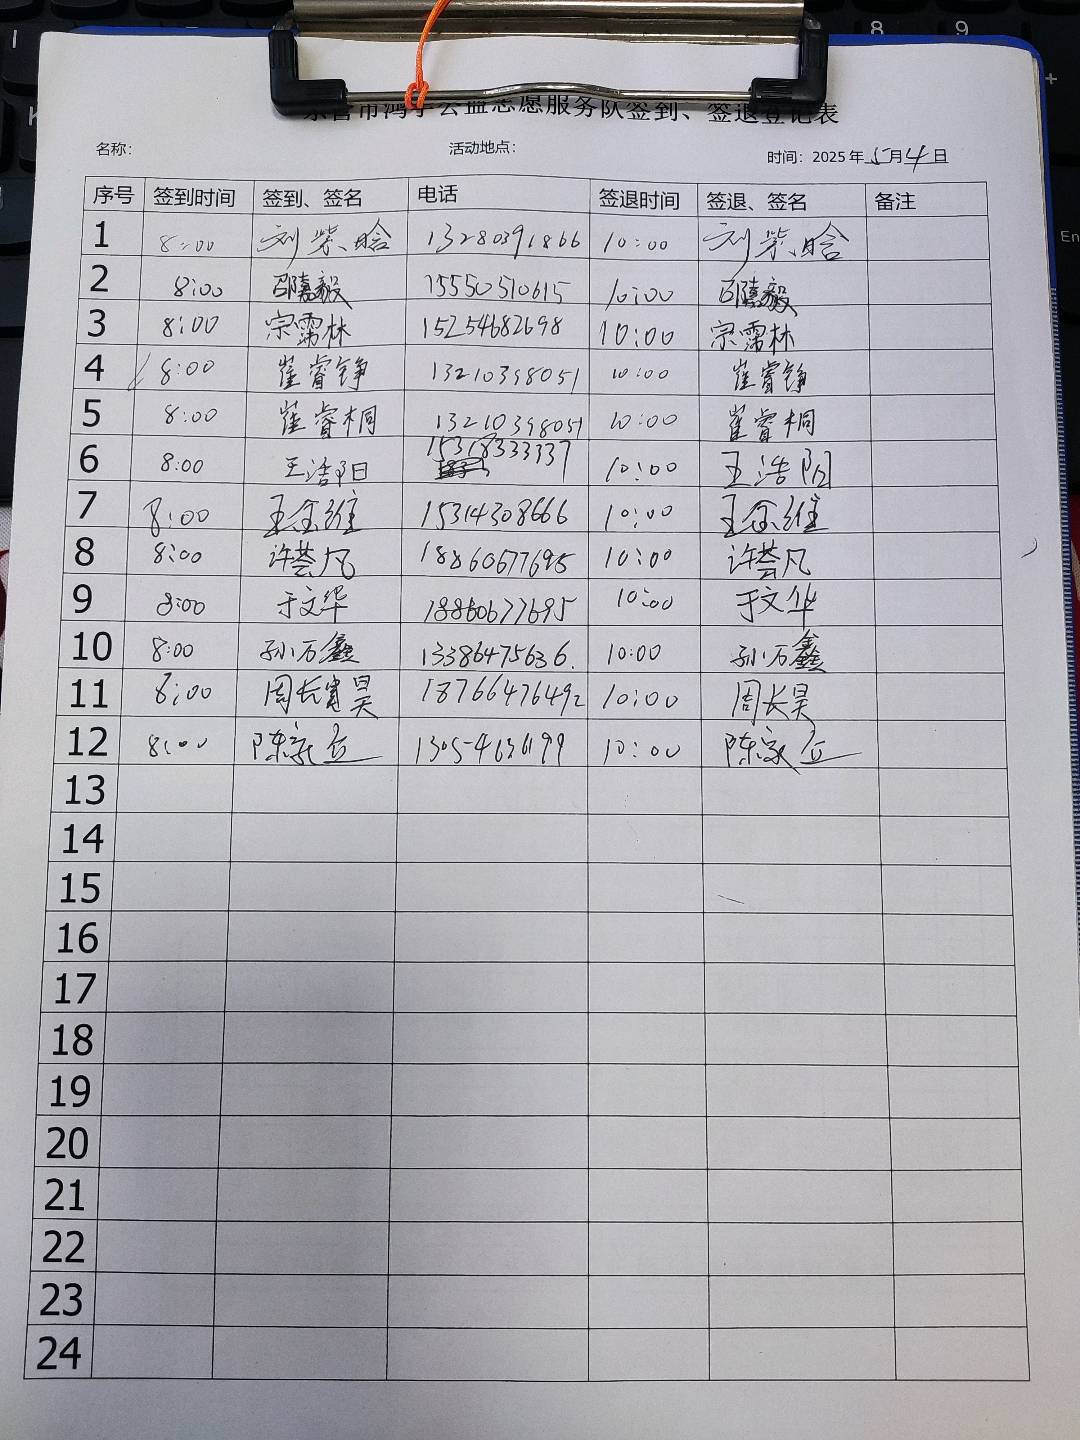 公益志愿服务队签到、签退登记表
名称: 活动地点: 时间: 2025年5月4日
序号 签到时间 签到、签名 电话 签退时间 签退、签名 备注
1 8:00 刘紫晗 13280391866 10:00 刘紫晗
2 8:00 邵嘉毅 15550510615 10:00 邵嘉毅
3 8:00 宗霈林 15254682698 10:00 宗霈林
4 8:00 崔睿铮 13210398051 10:00 崔睿铮
5 8:00 崔睿桐 13210398051 10:00 崔睿桐
6 8:00 王浩阳 15318333337 10:00 王浩阳
7 8:00 王金维 15314308666 10:00 王金维
8 8:00 许芸凡 18860677695 10:00 许芸凡
9 8:00 于文华 18860677695 10:00 于文华
10 8:00 孙万鑫 13386475636. 10:00 孙万鑫
11 8:00 周长昊 18766476492 10:00 周长昊
12 8:00 陈家 10:00 陈家
13
14
15
16
17
18
19
20
21
22
23
24